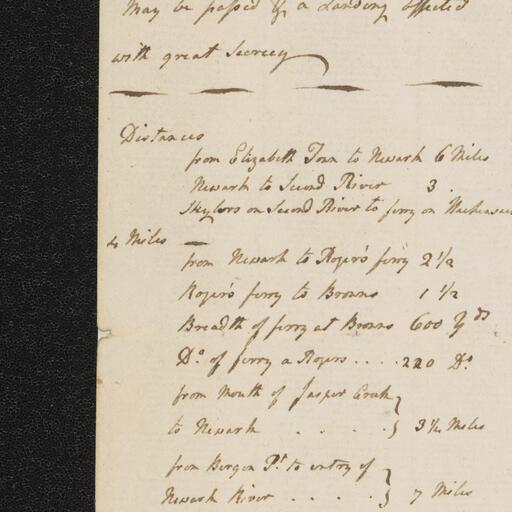 may be passed & a Landing effected
with great Secrecy
Distances
from Elizabeth Town to Newark 6 Miles
Newark to Second River 3 .
Skylers on Second River to ferry on Hackensack
4 Miles —
from Newark to Roger's ferry 2 1/2
Roger's ferry to Browns 1 1/2
Breadth of ferry at Browns 600 Yds
Do. of ferry a Rogers . . . . 220 Do.
from Mouth of Jasper Creek
to Newark . . . . . 3 1/2 Miles
from Bergen Pt. to entry of
Newark River . . . . . 7 Miles